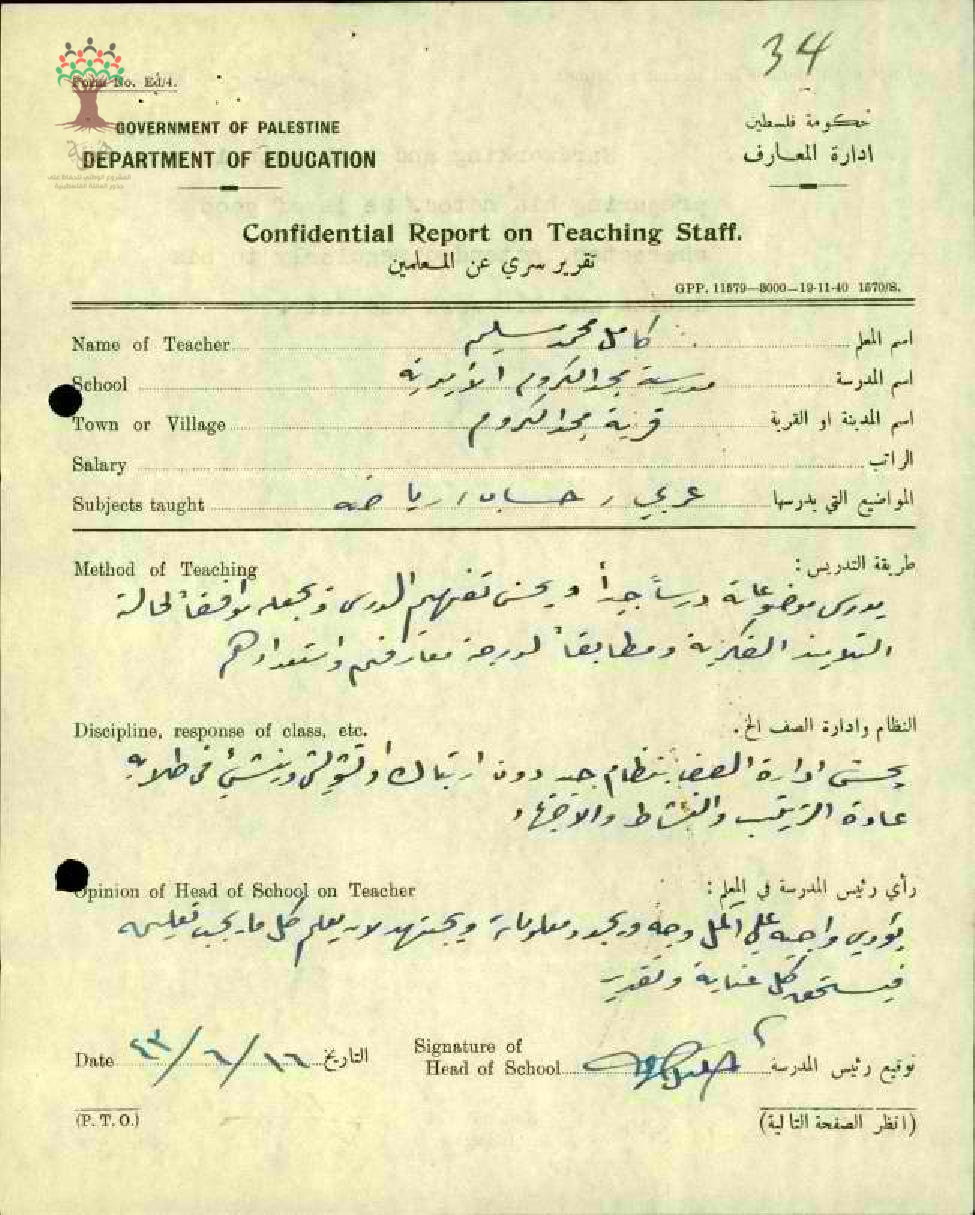 34
Form No. Ed/4.
GOVERNMENT OF PALESTINE
حكومة فلسطين
DEPARTMENT OF EDUCATION
ادارة المعارف
Confidential Report on Teaching Staff.
تقرير سري عن المعلمين
GPP. 11579—8000—19-11-40 1570/8.
Name of Teacher كامل محمد سليم اسم المعلم
School مدرسة مجد الكروم الأميرية اسم المدرسة
Town or Village قرية مجد الكروم اسم المدينة او القرية
Salary الراتب
Subjects taught عربي، حساب، رياضه المواضيع التي يدرسها
Method of Teaching طريقة التدريس :
يدرس موضوعاته درساً جيداً ويحسن تفهيم الدرس ويجعله موافقاً لحالة
التلاميذ الفكرية ومطابقاً لدرجة معارفهم واستعدادهم
Discipline, response of class, etc. النظام وادارة الصف الخ.
يحسن ادارة الصف بنظام جيد دون ارتباك او تشويش وينشئ في طلابه
عادة الترتيب والنشاط والاجتهاد
Opinion of Head of School on Teacher رأي رئيس المدرسة في المعلم :
يؤدي واجبه على اكمل وجه ويجدد معلوماته ويجتهد لان يعلم كل ما يجب تعليمه
فيستحق كل عناية وتقدير
Date ٤٣/٦/١٦ التاريخ
Signature of
Head of School توقيع رئيس المدرسة
(P. T. O.) (انظر الصفحة التالية)